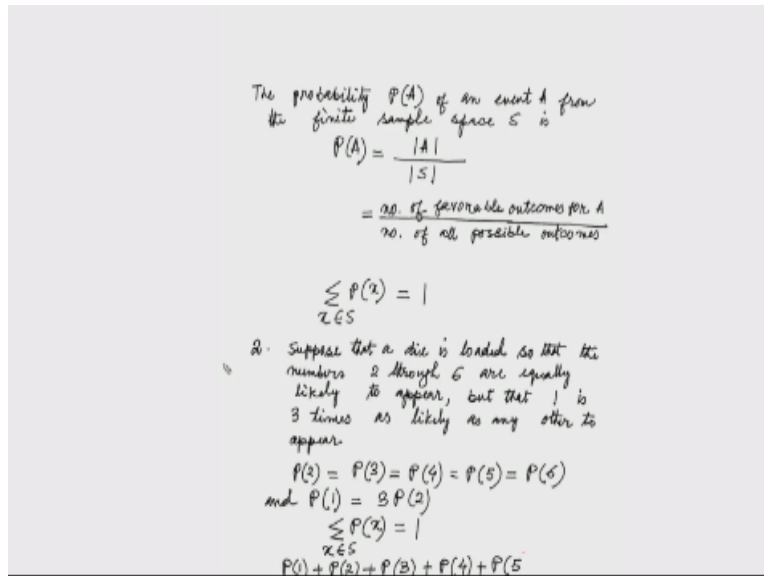 The probability P(A) of an event A from
the finite sample space S is
P(A) = |A|
|S|
= no. of favorable outcomes for A
no. of all possible outcomes
∑ P(x) = 1
x∈S
2. Suppose that a die is loaded so that the
numbers 2 through 6 are equally
likely to appear, but that 1 is
3 times as likely as any other to
appear.
P(2) = P(3) = P(4) = P(5) = P(6)
and P(1) = 3P(2)
∑ P(x) = 1
x∈S
P(1) + P(2) + P(3) + P(4) + P(5